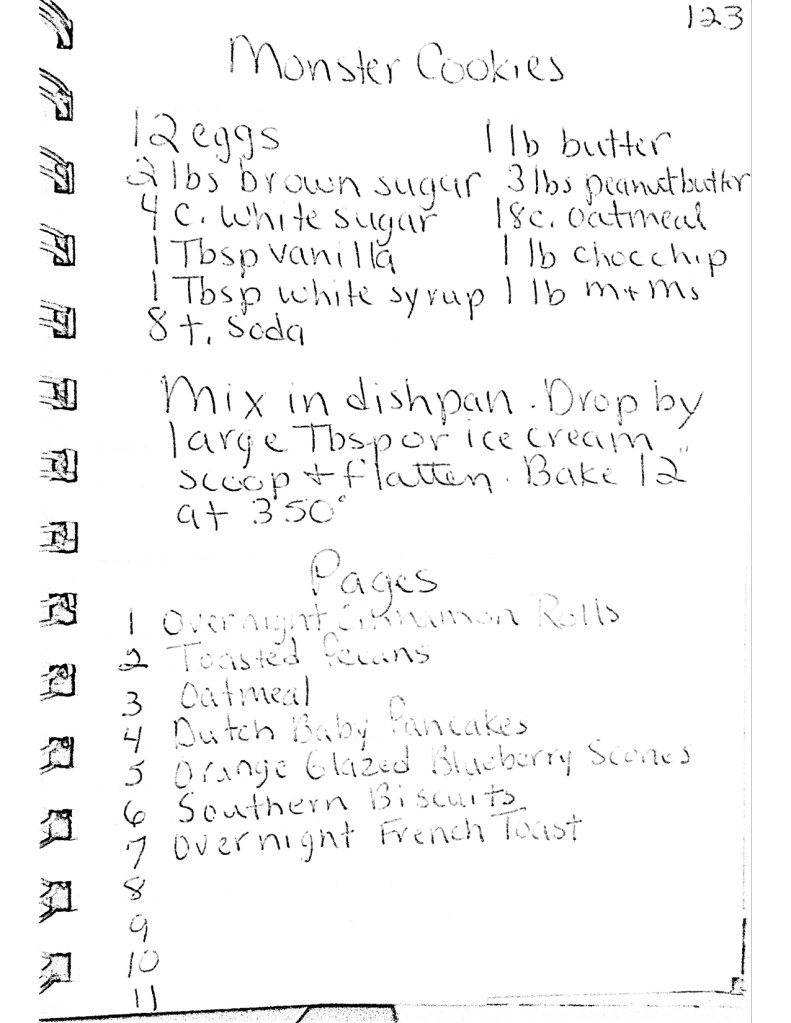 123
Monster Cookies
12 eggs 1 lb butter
2 lbs brown sugar 3 lbs peanutbutter
4 c. white sugar 18c. oatmeal
1 Tbsp vanilla 1 lb choc chip
1 Tbsp white syrup 1 lb m+ms
8 t. soda
Mix in dishpan. Drop by
large Tbsp or ice cream
scoop + flatten. Bake 12"
at 350°
Pages
1 Overnight Cinnamon Rolls
2 Toasted Pecans
3 Oatmeal
4 Dutch Baby Pancakes
5 Orange Glazed Blueberry Scones
6 Southern Biscuits
7 Overnight French Toast
8
9
10
11